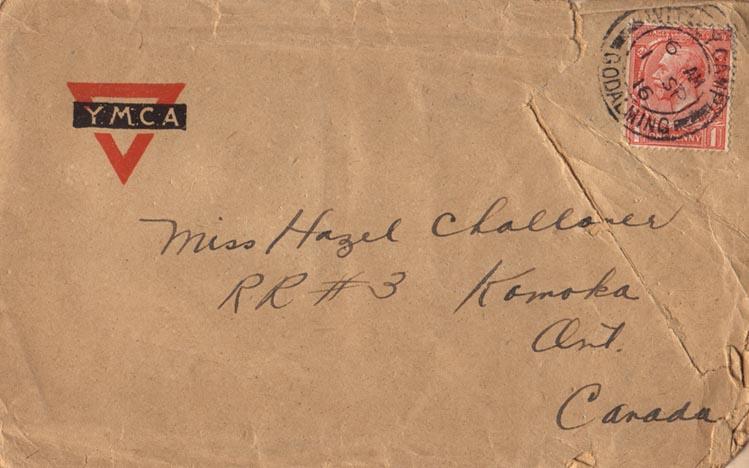 Y.M.C.A
CAMP
GODALMING
6 AM
1 SP
16
Miss Hazel Challoner
RR #3 Komoka
Ont.
Canada